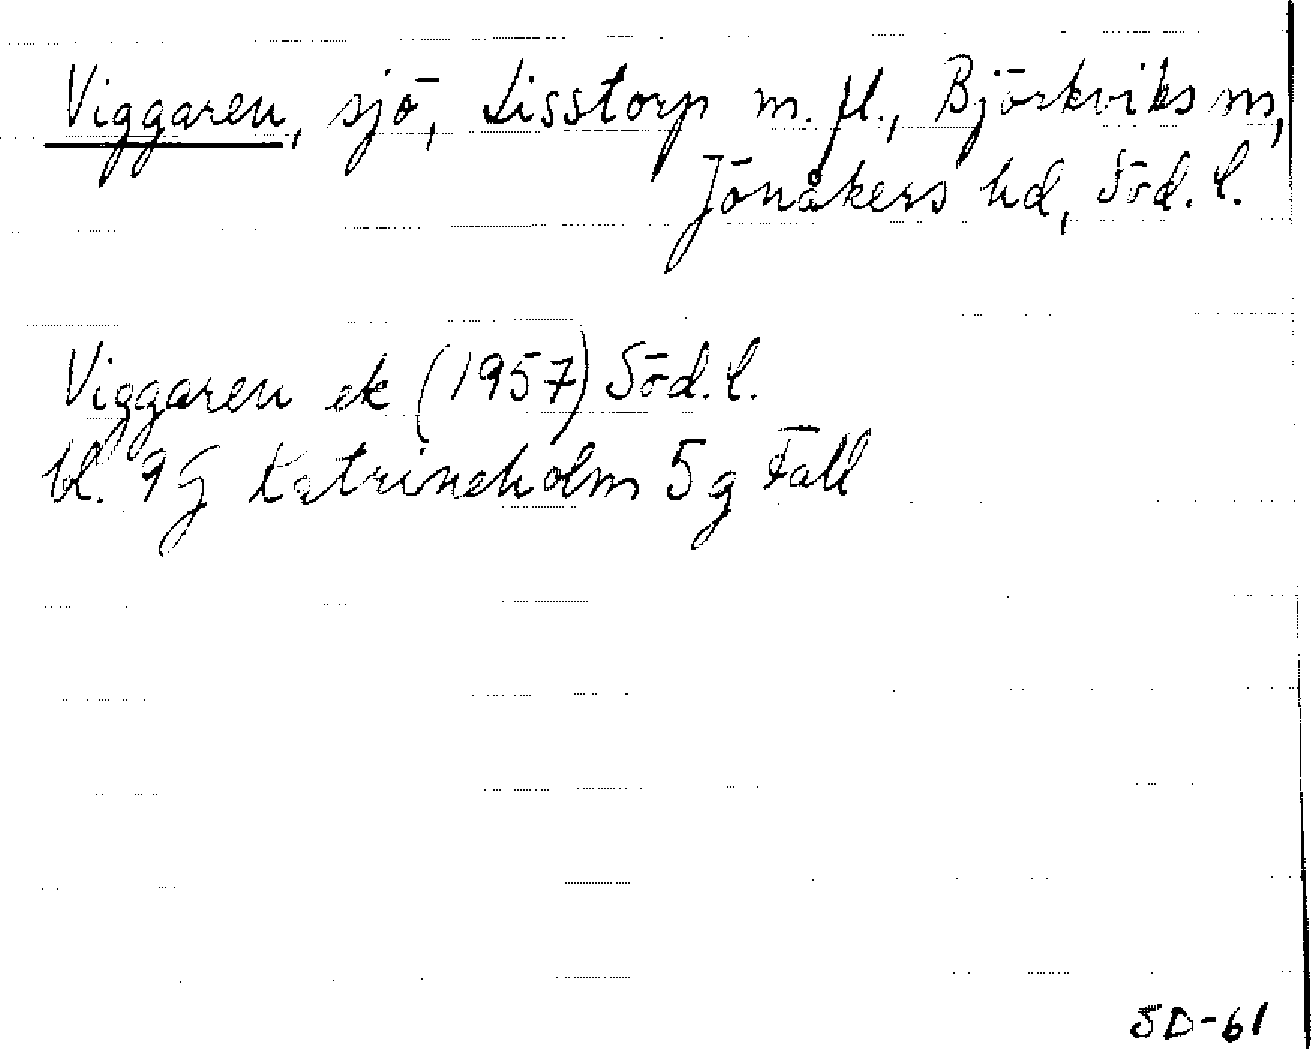 Viggaren, sjö, Lisstorp m. fl., Björkviks sn,
Jönåkers hd, Söd. l.
Viggaren ek (1957) Söd. l.
bl. 9 G Katrineholm 5 g Fall
SD-61